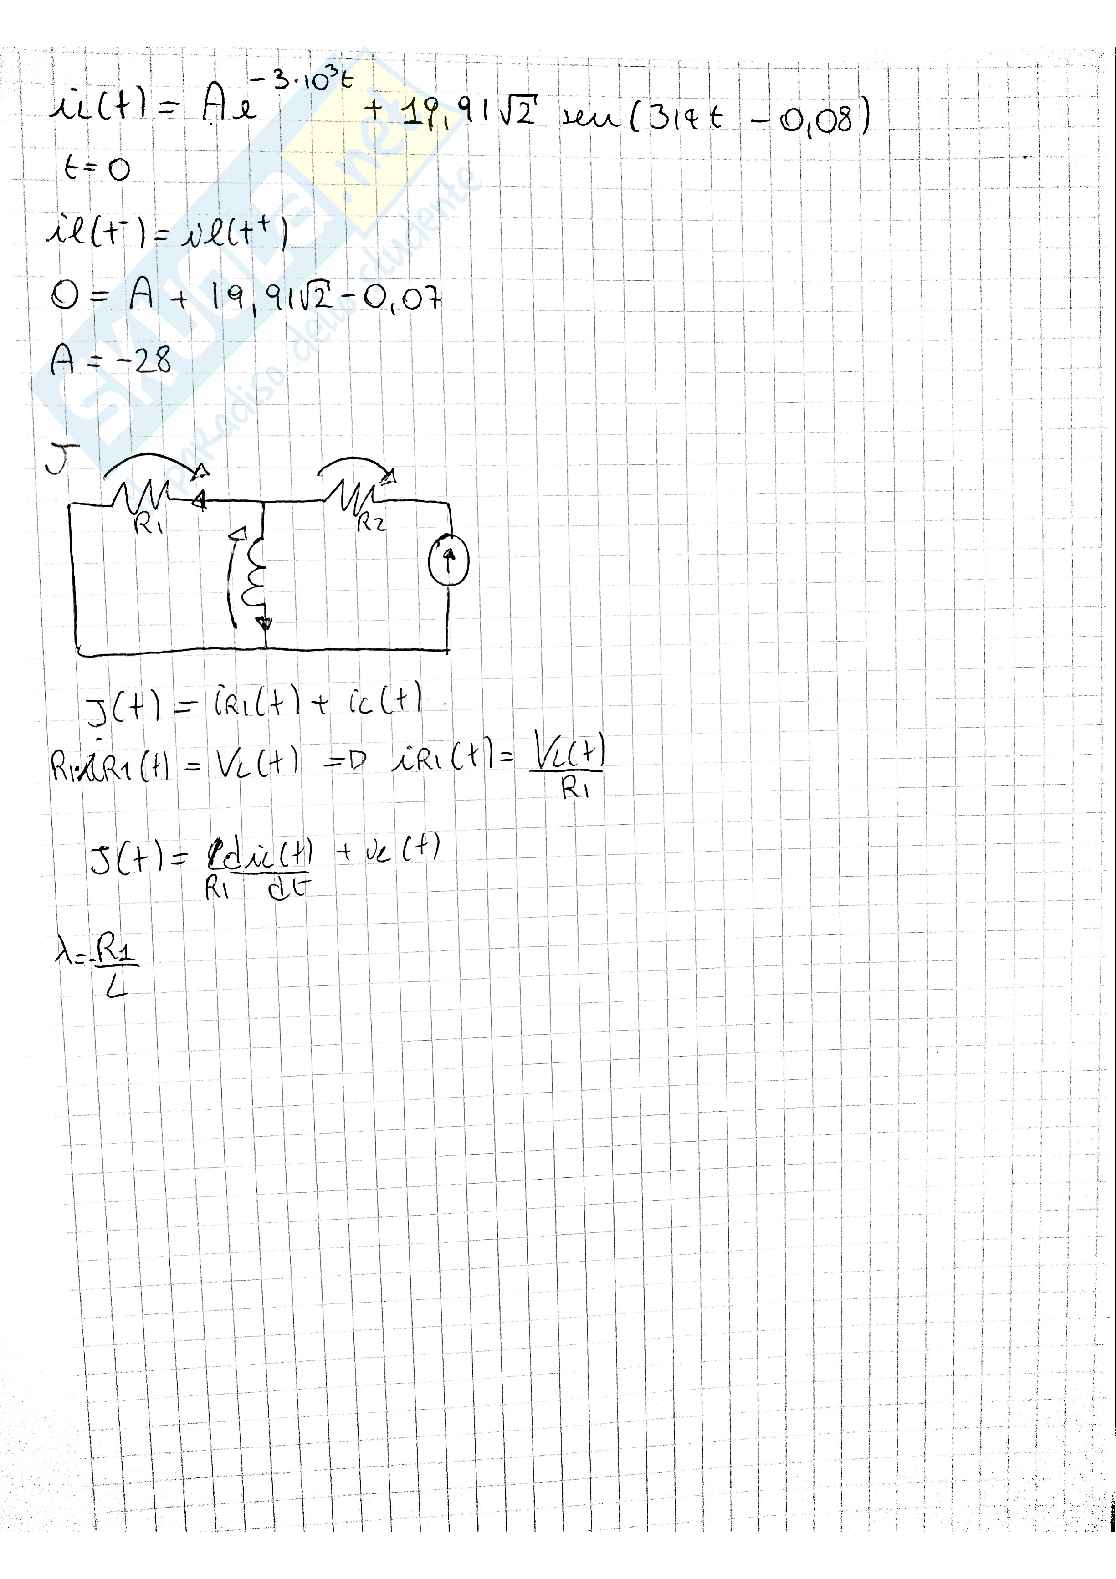 iL(t) = A e^{-3·10³t} + 19,91√2 sen (314t - 0,08)
t = 0
il(t⁻) = il(t⁺)
0 = A + 19,91√2 - 0,07
A = -28
J
R1 R2
J(t) = iR1(t) + iL(t)
R1·iR1(t) = VL(t) => iR1(t) = VL(t)/R1
J(t) = L/R1 diL(t)/dt + iL(t)
λ = -R1/L
SKUOLA.net
il paradiso dello studente